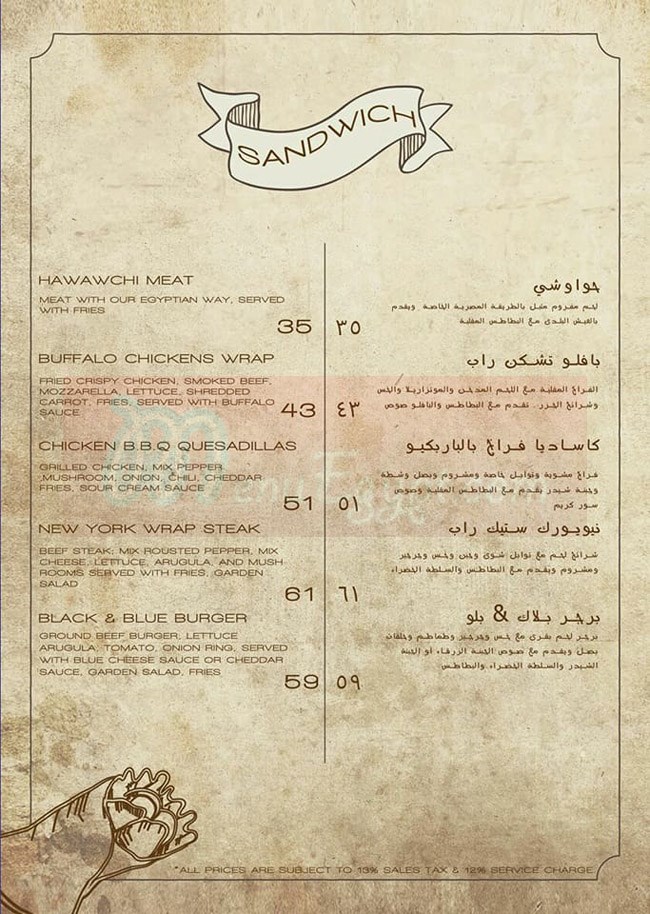 SANDWICH
HAWAWCHI MEAT
MEAT WITH OUR EGYPTIAN WAY, SERVED
WITH FRIES
35
BUFFALO CHICKENS WRAP
FRIED CRISPY CHICKEN, SMOKED BEEF,
MOZZARELLA, LETTUCE, SHREDDED
CARROT, FRIES, SERVED WITH BUFFALO
SAUCE
43
CHICKEN B.B.Q QUESADILLAS
GRILLED CHICKEN, MIX PEPPER
,MUSHROOM, ONION, CHILI, CHEDDAR
FRIES, SOUR CREAM SAUCE
51
NEW YORK WRAP STEAK
BEEF STEAK; MIX ROUSTED PEPPER, MIX
CHEESE, LETTUCE, ARUGULA, AND MUSH-
ROOMS SERVED WITH FRIES, GARDEN
SALAD
61
BLACK & BLUE BURGER
GROUND BEEF BURGER; LETTUCE
ARUGULA; TOMATO, ONION RING, SERVED
WITH BLUE CHEESE SAUCE OR CHEDDAR
SAUCE, GARDEN SALAD, FRIES
59
حواوشي
لحم مفروم متبل بالطريقة المصرية الخاصة ويقدم
بالعيش البلدى مع البطاطس المقلية
٣٥
بافلو تشكن راب
الفراخ المقلية مع اللحم المدخن والموتزاريلا والخس
وشرائح الجزر. تقدم مع البطاطس والبافلو صوص
٤٣
كاساديا فراخ بالباربكيو
فراخ مشوية وتوابل خاصة ومشروم وبصل وشطة
وجبنة شيدر يقدم مع البطاطس المقلية وصوص
سور كريم
٥١
نيويورك ستيك راب
شرائح لحم مع توابل شوى وجبن وخس وجرجير
ومشروم ويقدم مع البطاطس والسلطة الخضراء
٦١
برجر بلاك & بلو
برجر لحم بقرى مع خس وجرجير وطماطم وحلقات
بصل ويقدم مع صوص الجبنة الزرقاء أو الجبنة
الشيدر والسلطة الخضراء والبطاطس
٥٩
*ALL PRICES ARE SUBJECT TO 13% SALES TAX & 12% SERVICE CHARGE